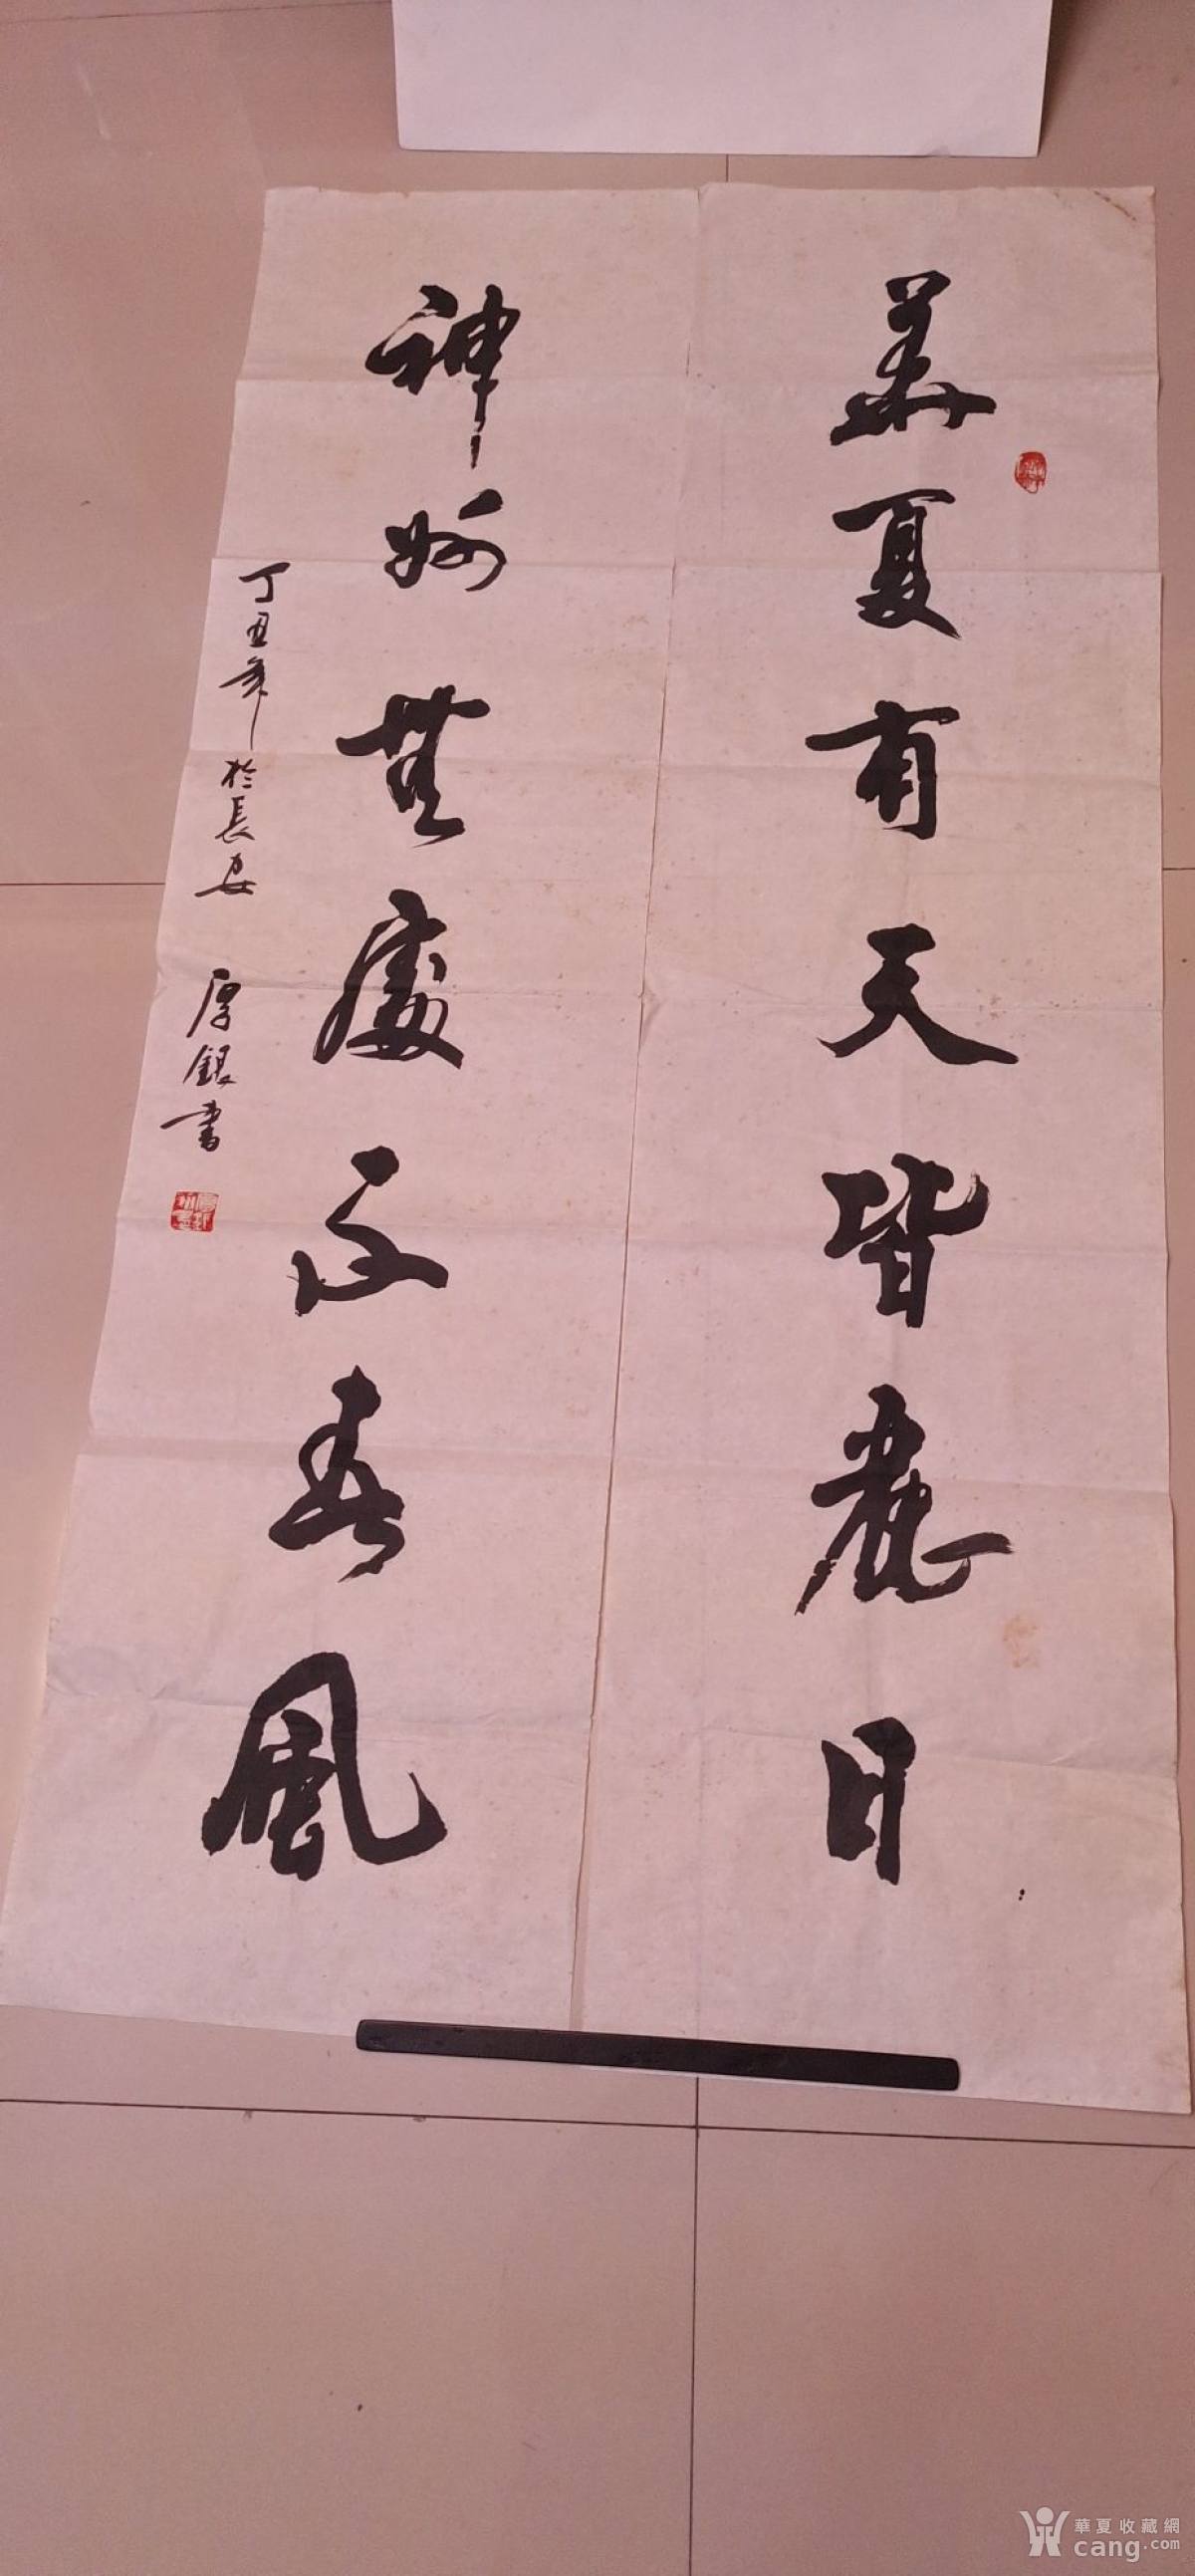 華夏有天皆麗日
神州無處不春風
丁丑年於長安 厚銀書
華夏收藏網
cang.com